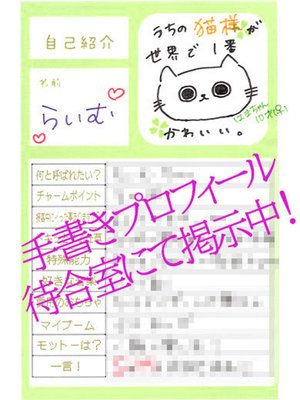 自己紹介
名前
らいむ
うちの猫様が
世界で1番
かわいい。
何と呼ばれたい?
チャームポイント
特殊能力
マイブーム
モットーは?
一言!
手書きプロフィール
待合室にて掲示中!